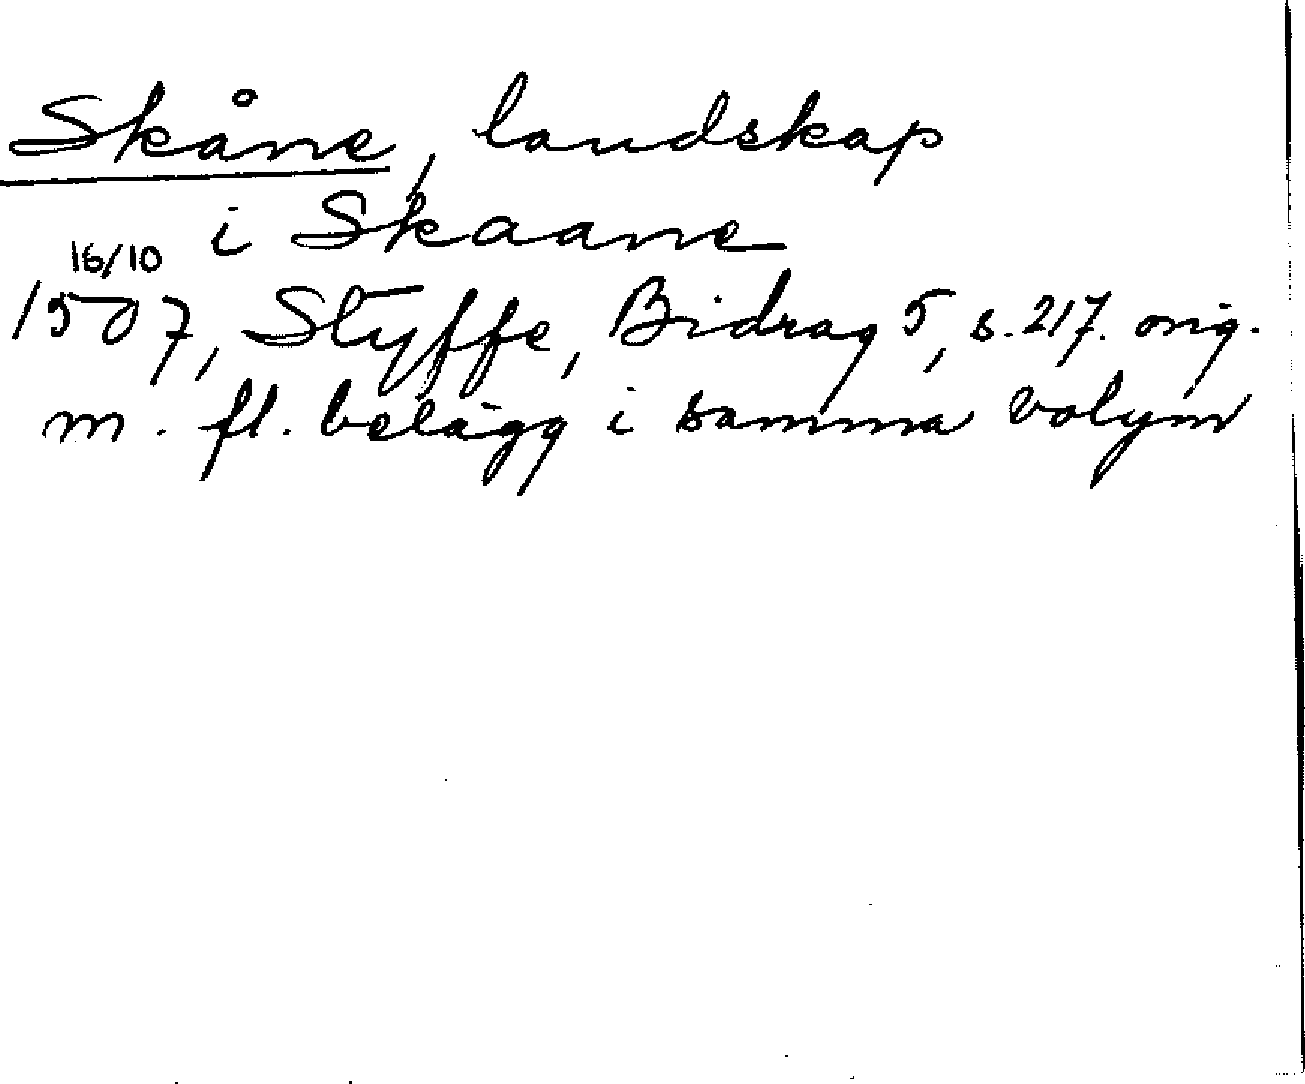 Skåne, landskap
i Skaane
16/10
1507, Styffe, Bidrag 5, s. 217. orig.
m. fl. belägg i samma volym